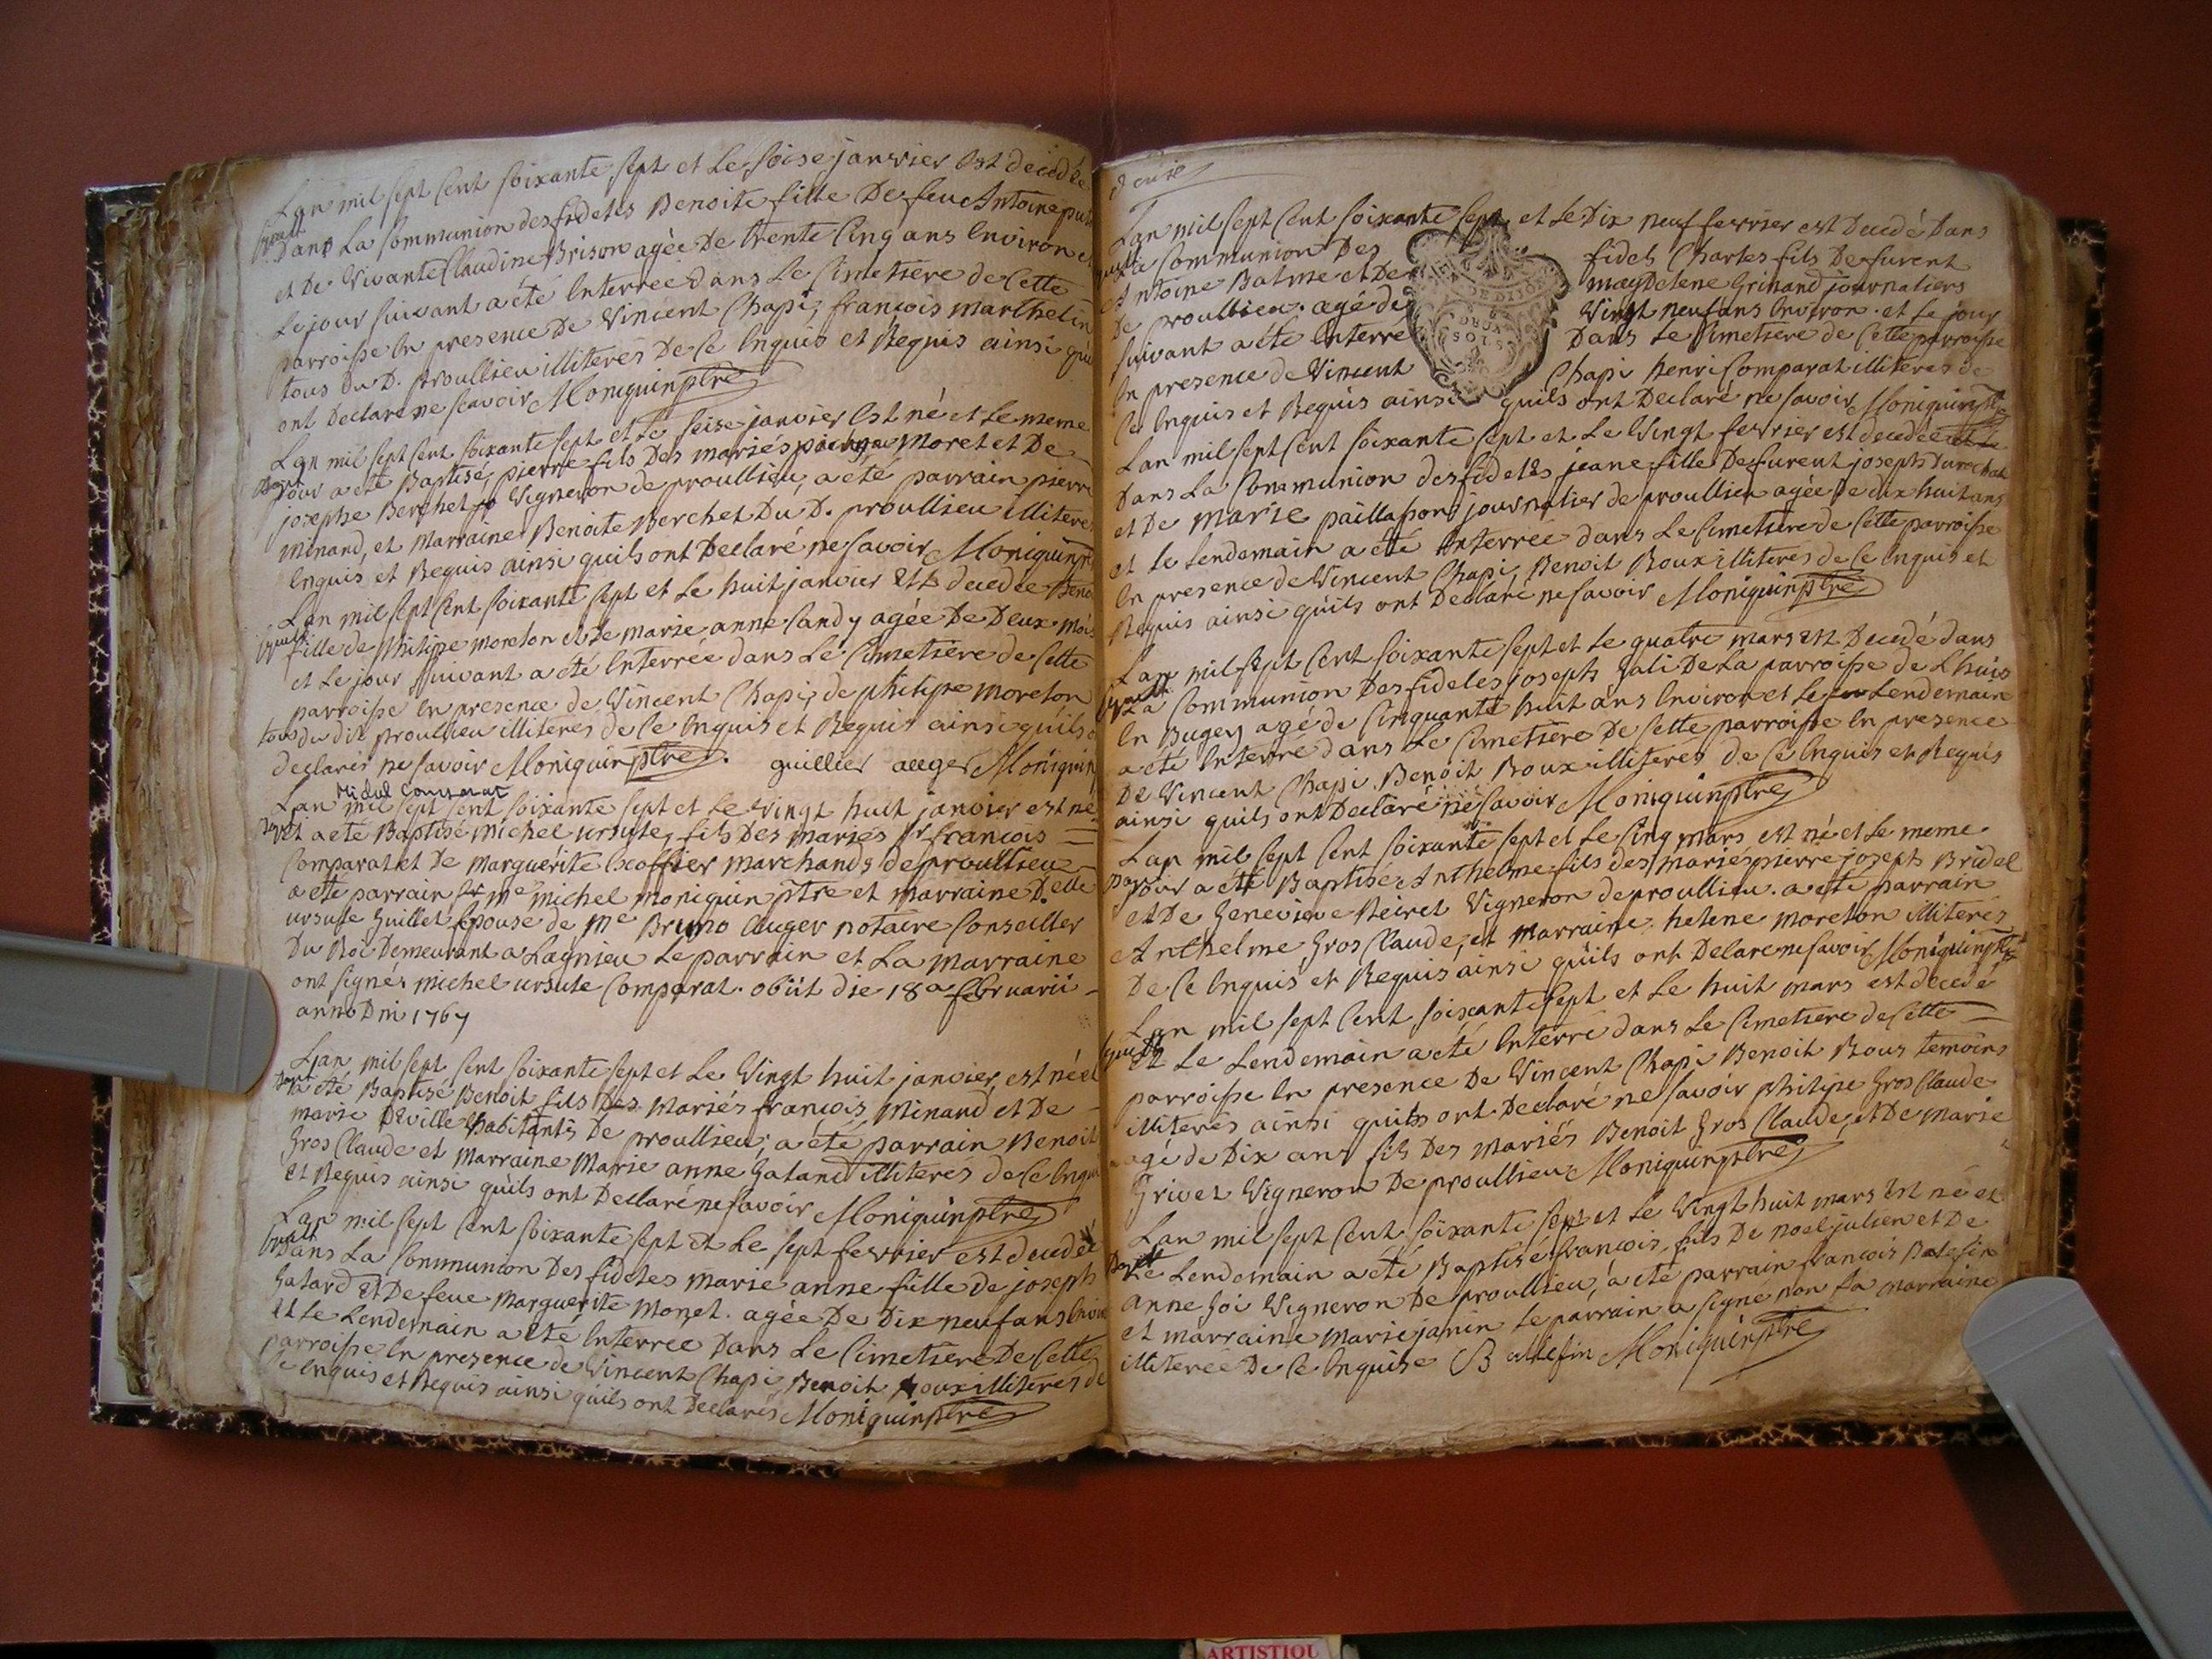 Lan mil sept cent soixante sept et le seise janvier est decedée
dans la Communion des fideles Benoite fille De feu Antoine
et De Vivante Claudine Brison agée De trente Cinq ans Environ et
le jour suivant a été Enterrée dans le Cimetiere de Cette
parroisse En presence De Vincent Chapi, françois marthelin
tous du D. proullieu illiterés De Ce Enquis et Requis ainsi quils
ont Declaré ne scavoir Moniquin ptre
Lan mil sept cent soixante sept et le seise janvier est né et le meme
jour a été Baptisé, pierre fils Des mariés pierre Moret et De
josephe Berchet Vigneron de proullieu, a été parrain pierre
minand, et Marraine Benoite Berchet Du D. proullieu illiteres
Enquis, et Requis ainsi quils ont Declaré ne savoir Moniquin ptre
Lan mil sept Cent soixante sept et Le huit janvier est decedée
fille de philippe moreton et de marie anne landy agée De Deux mois
et Le jour suivant a été Enterrée dans Le Cimetiere de Cette
parroisse En presence de Vincent Chapi, de philippe moreton
tous du dit proullieu illiteres de Ce Enquis et Requis ainsi quils
declarés ne savoir Moniquin ptre. guillier auger Moniquin
Michel Comparat
Lan mil sept Cent soixante sept et Le Vingt huit janvier est né
et a été Baptisé michel ursule, fils Des mariés sr françois
Comparat et De marguérite Escoffier marchands de proullieu
a été parrain me michel moniquin ptre et marraine Delle
ursule Guillet Epouse de me Bruno Auger notaire Conseiller
Du Roi Demeurant a Lagnieu Le parrain et La marraine
ont signés michel ursule Comparat. obiit die 18a februarii
anno Dni 1767
Lan mil sept Cent soixante sept et Le Vingt huit janvier, est né et
a été Baptisé Benoit fils Des mariés françois minand et De
marie Deville habitants De proullieu; a été parrain Benoit
Gros Claude et marraine Marie anne Galand illiteres de Ce Enquis
et Requis ainsi quils ont Declaré ne savoir Moniquin ptre
Lan mil sept Cent soixante sept et Le sept fevrier est decedée
Dans La Communion Des fideles marie anne fille de joseph
Galard et De feue marguerite monet. agée De Dix neuf ans Environ
et le Lendemain a été Enterrée Dans Le Cimetiere De Cette
parroisse En presence de Vincent Chapi Benoit Roux illiteres de
Ce Enquis et Requis ainsi quils ont Declarés Moniquin ptre
Lan mil sept Cent soixante sept et Le Dix neuf fevrier est Decedé Dans
la Communion Des fideles Charles fils De furent
Antoine Balme et De magdelene Grinand journaliers
De proullieu: agé de Vingt neuf ans Environ. et Le jour
suivant a été Enterré Dans Le Cimetiere de Cette parroisse
En presence de Vincent Chapi henri Comparat illiteres de
Ce Enquis et Requis ainsi quils ont Declaré ne savoir Moniquin ptre
Lan mil sept Cent soixante sept et Le Vingt fevrier est decedée
Dans La Communion des fideles jeane fille De furent joseph
et De marie paillasson journalier de proullieu agée De dix huit ans
et le lendemain a été Enterrée dans Le Cimetiere de Cette parroisse
En presence de Vincent Chapi, Benoit Roux illiteres de Ce Enquis et
Requis ainsi quils ont Declaré ne savoir Moniquin ptre
Lan mil sept Cent soixante sept et Le quatre mars est Decedé dans
La Communion Des fideles joseph Gali De La parroisse de Lhuis
En Bugey agé de Cinquante huit ans Environ et Le Lendemain
a été Enterré dans Le Cimetiere De Cette parroisse En presence
De Vincent Chapi Benoit Roux illiteres de Ce Enquis et Requis
ainsi quils ont Declaré ne savoir Moniquin ptre
Lan mil sept Cent soixante sept et Le Cinq mars est né et Le meme
jour a été Baptisé Anthelme fils des mariés pierre joseph Bridel
et De Genevieve Neiret Vigneron de proullieu. a été parrain
Anthelme Gros Claude, et Marraine helene Moreton illiteres
De Ce Enquis et Requis ainsi quils ont Declare ne savoir Moniquin ptre
Lan mil sept Cent soixante sept et Le huit mars est decedé
et Le Lendemain a été Enterré dans Le Cimetiere de Cette
parroisse En presence De Vincent Chapi Benoit Roux temoins
illiterés ainsi quils ont Declaré ne savoir philipe Gros Claude
agé de Dix ans fils Des mariés Benoit Gros Claude, et De marie
Grivet Vigneron De proullieu Moniquin ptre
Lan mil sept Cent soixante sept et Le Vingt huit mars est né et
Le Lendemain a été Baptisé françois, fils De noel julien et De
anne Goi Vigneron De proullieu, a été parrain françois Balefin
et marraine marie janin Le parrain a signé non La marraine
illiterée De Ce Enquise Ballefin Moniquin ptre
ARTISTIQU